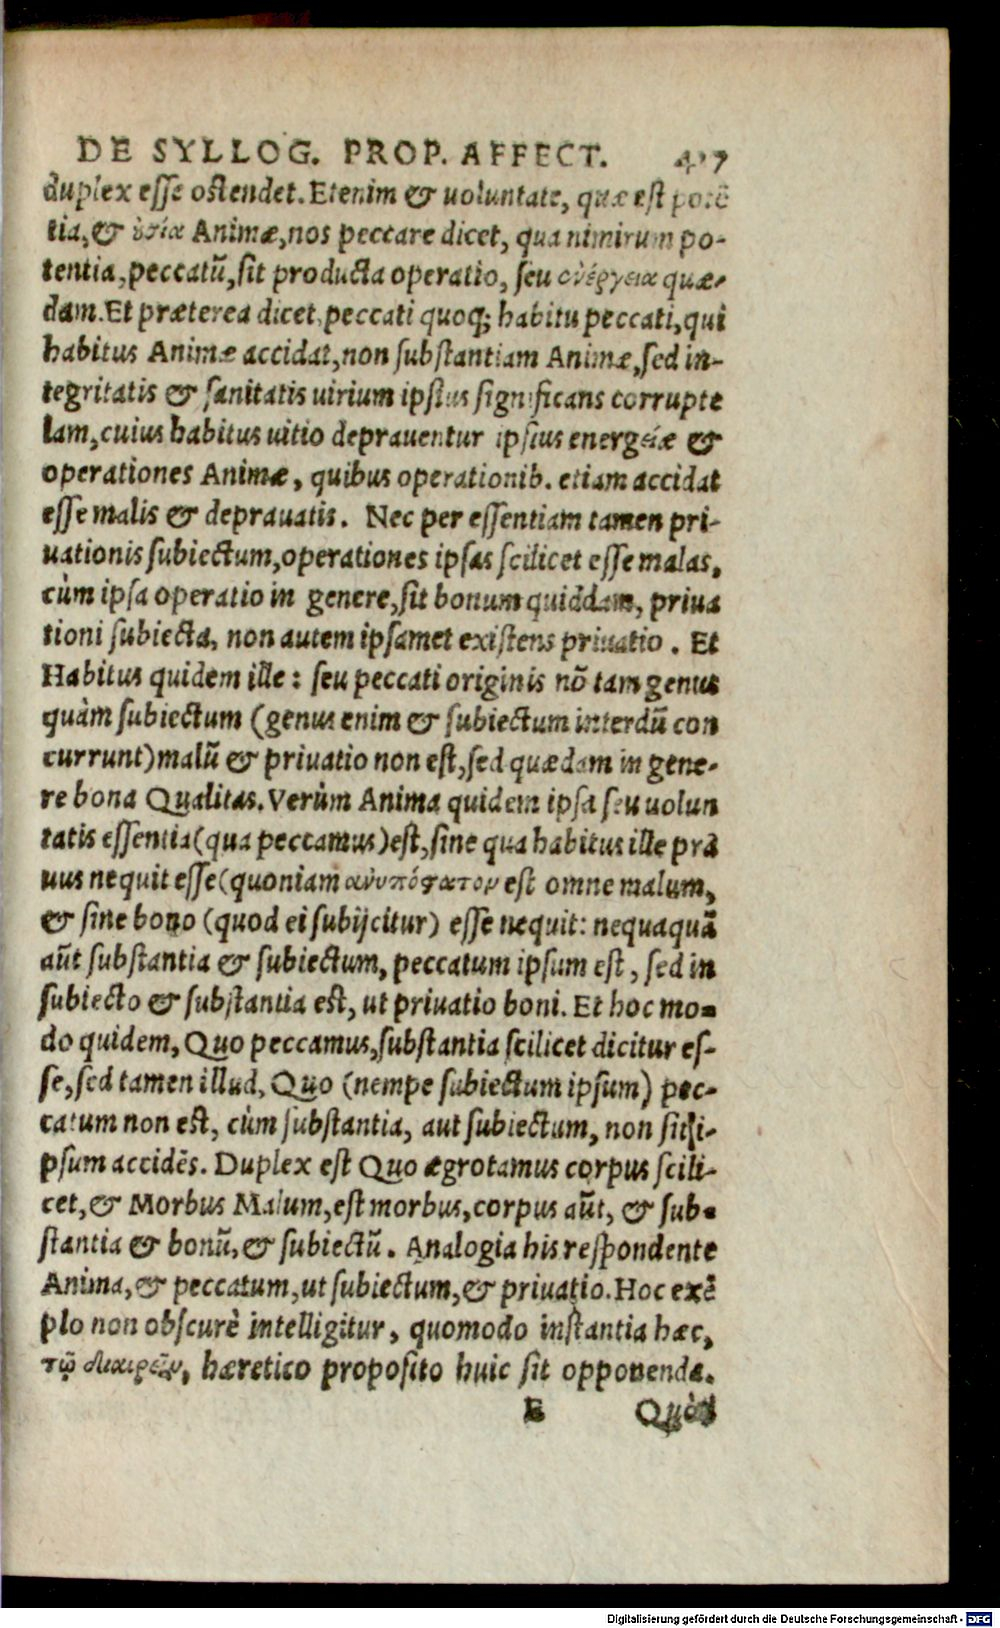 DE SYLLOG. PROP. AFFECT. 417
duplex esse ostendet. Etenim & uoluntate, quæ est potẽ
tia, & ὐσία Animæ, nos peccare dicet, qua nimirum po-
tentia, peccatũ, sit producta operatio, seu ἐνέργεια quæ-
dam. Et præterea dicet, peccati quoq; habitu peccati, qui
habitus Animæ accidat, non substantiam Animæ, sed in-
tegritatis & sanitatis uirium ipsius significans corrupte
lam, cuius habitus uitio deprauentur ipsius energeiæ &
operationes Animæ, quibus operationib. etiam accidat
esse malis & deprauatis. Nec per essentiam tamen pri-
uationis subiectum, operationes ipsas scilicet esse malas,
cùm ipsa operatio in genere, sit bonum quiddam, priua
tioni subiecta, non autem ipsamet existens priuatio. Et
Habitus quidem ille: seu peccati originis nõ tam genus
quàm subiectum (genus enim & subiectum interdũ con
currunt) malũ & priuatio non est, sed quædam in gene-
re bona Qualitas. Verùm Anima quidem ipsa seu uolun
tatis essentia (qua peccamus) est, sine qua habitus ille pra
uus nequit esse (quoniam ἀνυπόστατον est omne malum,
& sine bono (quod ei subijcitur) esse nequit: nequaquã
aũt substantia & subiectum, peccatum ipsum est, sed in
subiecto & substantia est, ut priuatio boni. Et hoc mo-
do quidem, Quo peccamus, substantia scilicet dicitur es-
se, sed tamen illud, Quo (nempe subiectum ipsum) pec-
catum non est, cùm substantia, aut subiectum, non sit i-
psum accidẽs. Duplex est Quo ægrotamus corpus scili-
cet, & Morbus Malum, est morbus, corpus aũt, & sub-
stantia & bonũ, & subiectũ. Analogia his respondente
Anima, & peccatum, ut subiectum, & priuatio. Hoc exẽ
plo non obscurè intelligitur, quomodo instantia hæc,
τῷ διαιρεῖν, hæretico proposito huic sit opponenda.
E Quòd
Digitalisierung gefördert durch die Deutsche Forschungsgemeinschaft - DFG